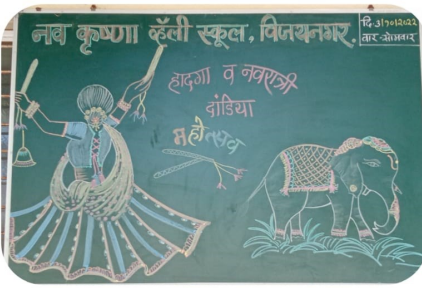 नव कृष्णा व्हॅली स्कूल, विजयनगर.
दि ३/१०/२०२२
वार-सोमवार
हादगा व नवरात्री
दांडिया
महोत्सव